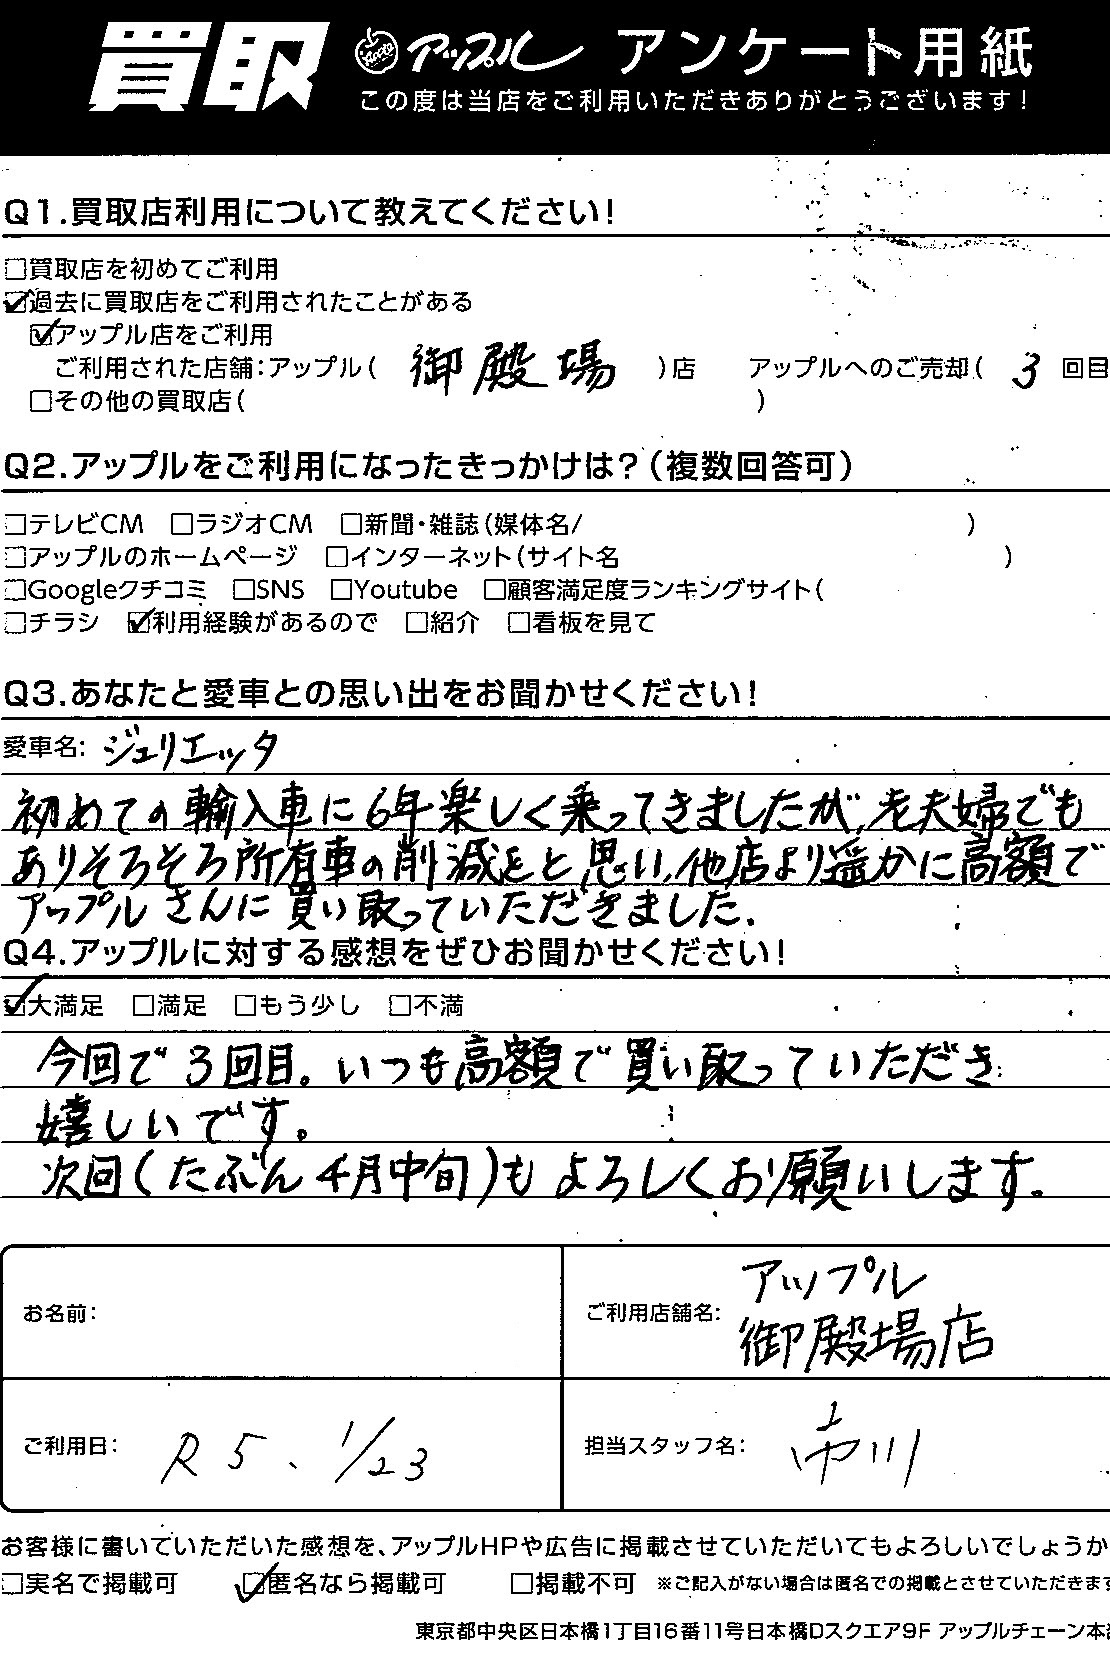 買取 Apple アップル アンケート用紙
この度は当店をご利用いただきありがとうございます!
Q1.買取店利用について教えてください!
□買取店を初めてご利用
☑過去に買取店をご利用されたことがある
☑アップル店をご利用
ご利用された店舗:アップル( 御殿場 )店 アップルへのご売却( 3 回目
□その他の買取店( )
Q2.アップルをご利用になったきっかけは?(複数回答可)
□テレビCM □ラジオCM □新聞・雑誌(媒体名/ )
□アップルのホームページ □インターネット(サイト名 )
□Googleクチコミ □SNS □Youtube □顧客満足度ランキングサイト(
□チラシ ☑利用経験があるので □紹介 □看板を見て
Q3.あなたと愛車との思い出をお聞かせください!
愛車名: ジュリエッタ
初めての輸入車に6年楽しく乗ってきましたが、老夫婦でも
ありそろそろ所有車の削減をと思い、他店より遥かに高額で
アップルさんに買い取っていただきました.
Q4.アップルに対する感想をぜひお聞かせください!
☑大満足 □満足 □もう少し □不満
今回で3回目。いつも高額で買い取っていただき
嬉しいです。
次回(たぶん4月中旬)もよろしくお願いします.
お名前:
ご利用店舗名: アップル
御殿場店
ご利用日: R5、1/23
担当スタッフ名: 市川
お客様に書いていただいた感想を、アップルHPや広告に掲載させていただいてもよろしいでしょうか
□実名で掲載可 ☑匿名なら掲載可 □掲載不可 ※ご記入がない場合は匿名での掲載とさせていただきます
東京都中央区日本橋1丁目16番11号日本橋Dスクエア9F アップルチェーン本部